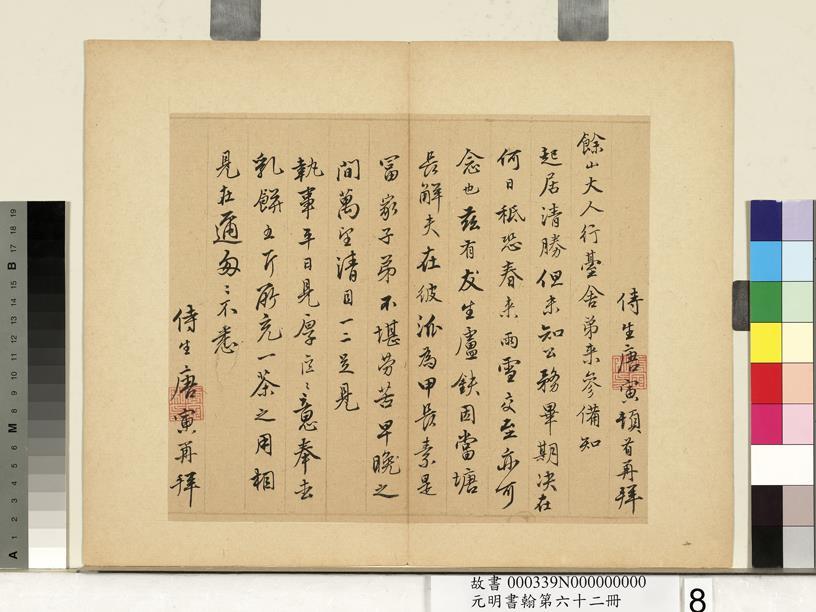 侍生唐寅頓首再拜
餘山大人行臺舍弟來參備知
起居清勝但未知公務畢期決在
何日秪恐春來雨雪交至亦可
念也茲有友生盧鈇因當塘
長解夫在彼派為甲長素是
富家子弟不堪勞苦早晚之
間萬望清目一二足見
執事平日見厚區〻意奉去
乳餅五斤所充一茶之用相
見在邇匆〻不悉
侍生唐寅再拜
故書 000339N000000000
元明書翰第六十二冊
8
A 1 2 3 4 5 6 M 8 9 10 11 12 13 14 15 B 17 18 19